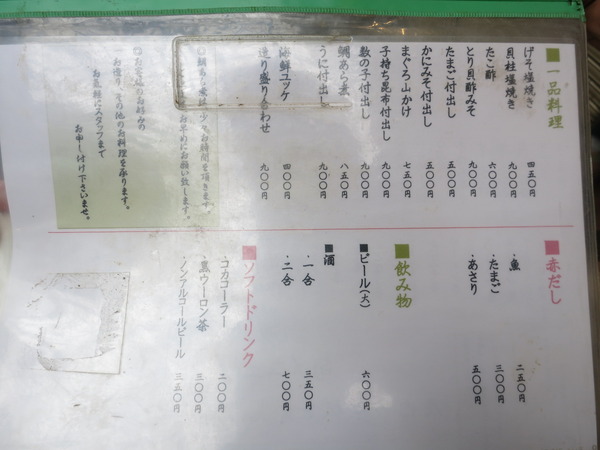 ■一品料理
げそ塩焼き 四五〇円
貝柱塩焼き 九〇〇円
たこ酢 六〇〇円
とり貝酢みそ 九〇〇円
たまご付出し 五〇〇円
かにみそ付出し 五〇〇円
まぐろ山かけ 七五〇円
子持ち昆布付出し 九〇〇円
数の子付出し 九〇〇円
鯛あら煮 八五〇円
うに付出し 九〇〇円
海鮮ユッケ 四〇〇円
造り盛り合わせ 九〇〇円
◎鯛あら煮は少々お時間を頂きます。
お早めにお願い致します。
◎お客様のお好みの
お造り、その他のお料理を承ります。
お気軽にスタッフまで
お申し付け下さいませ。
■赤だし
・魚 二五〇円
・たまご 三〇〇円
・あさり 五〇〇円
■飲み物
■ビール(大) 六〇〇円
■酒
・一合 三五〇円
・二合 七〇〇円
■ソフトドリンク
・コカコーラー 二〇〇円
・黒ウーロン茶 三〇〇円
・ノンアルコールビール 三五〇円